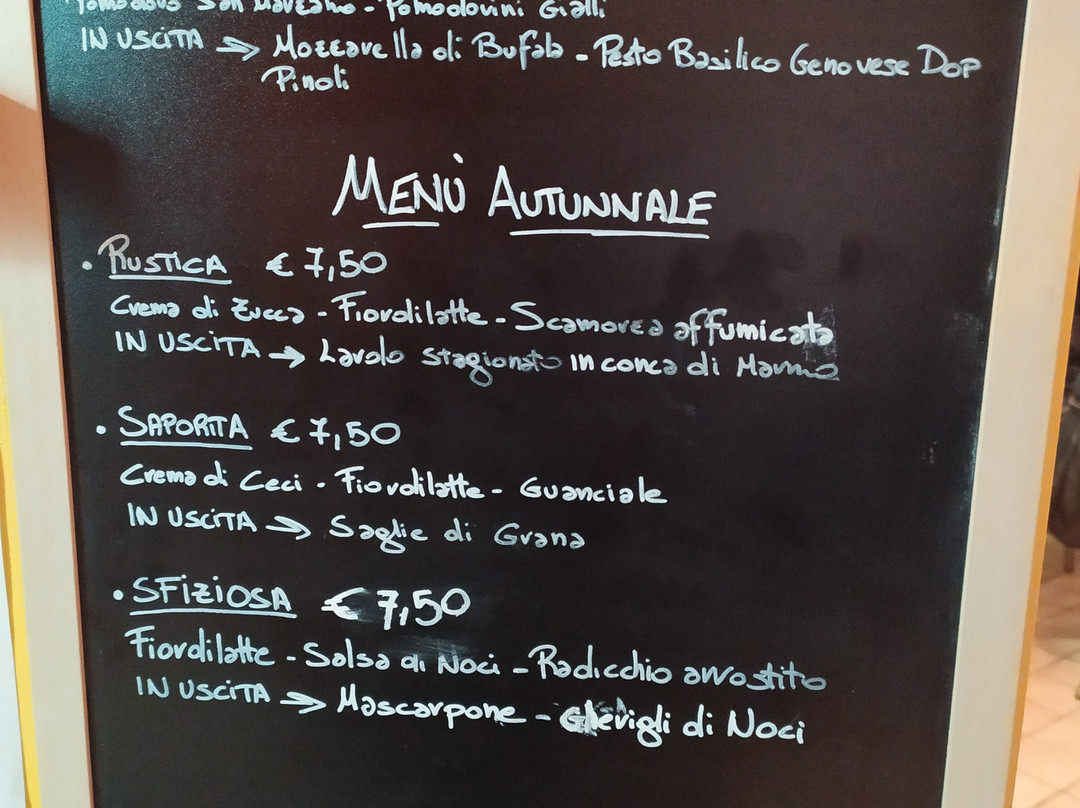 Pomodoro San Marzano - Pomodorini Gialli
IN USCITA → Mozzarella di Bufala - Pesto Basilico Genovese DOP
Pinoli
MENÙ AUTUNNALE
• RUSTICA € 7,50
Crema di Zucca - Fiordilatte - Scamorza affumicata
IN USCITA → Lardo stagionato in conca di Marmo
• SAPORITA € 7,50
Crema di Ceci - Fiordilatte - Guanciale
IN USCITA → Saglie di Grana
• SFIZIOSA € 7,50
Fiordilatte - Salsa di Noci - Radicchio arrostito
IN USCITA → Mascarpone - Gherigli di Noci